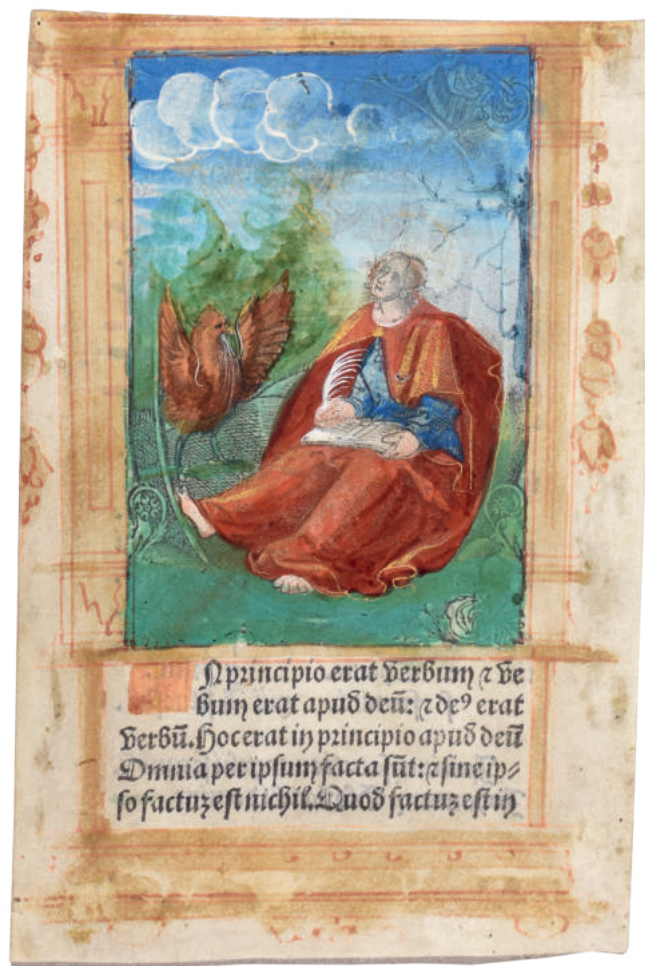 N principio erat verbum ⁊ ve
bum erat apud deū: ⁊ deꝰ erat
verbū. Hoc erat in principio apud deū
Omnia per ipsum facta sūt: ⁊ sine ip⸗
so factuꝫ est nichil. Quod factuꝫ est in